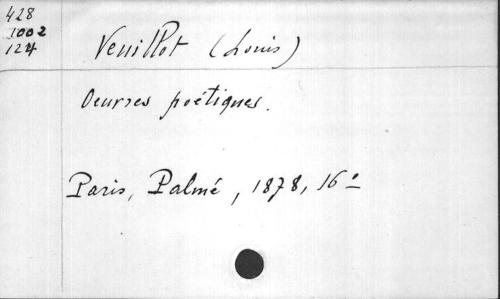 428
1002
124
Veuillot (Louis)
Oeuvres poétiques.
Paris, Palmé, 1878, 16°